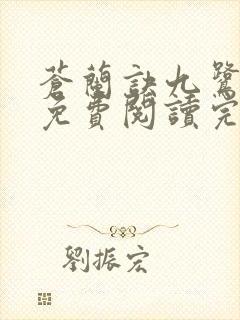 蒼蘭訣九鷺
免費閱讀完
劉振宏